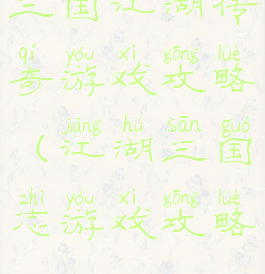 三国江湖传
qí yóu xì gōng lüè
奇游戏攻略
jiāng hú sān guó
（江湖三国
zhì yóu xì gōng lüè
志游戏攻略